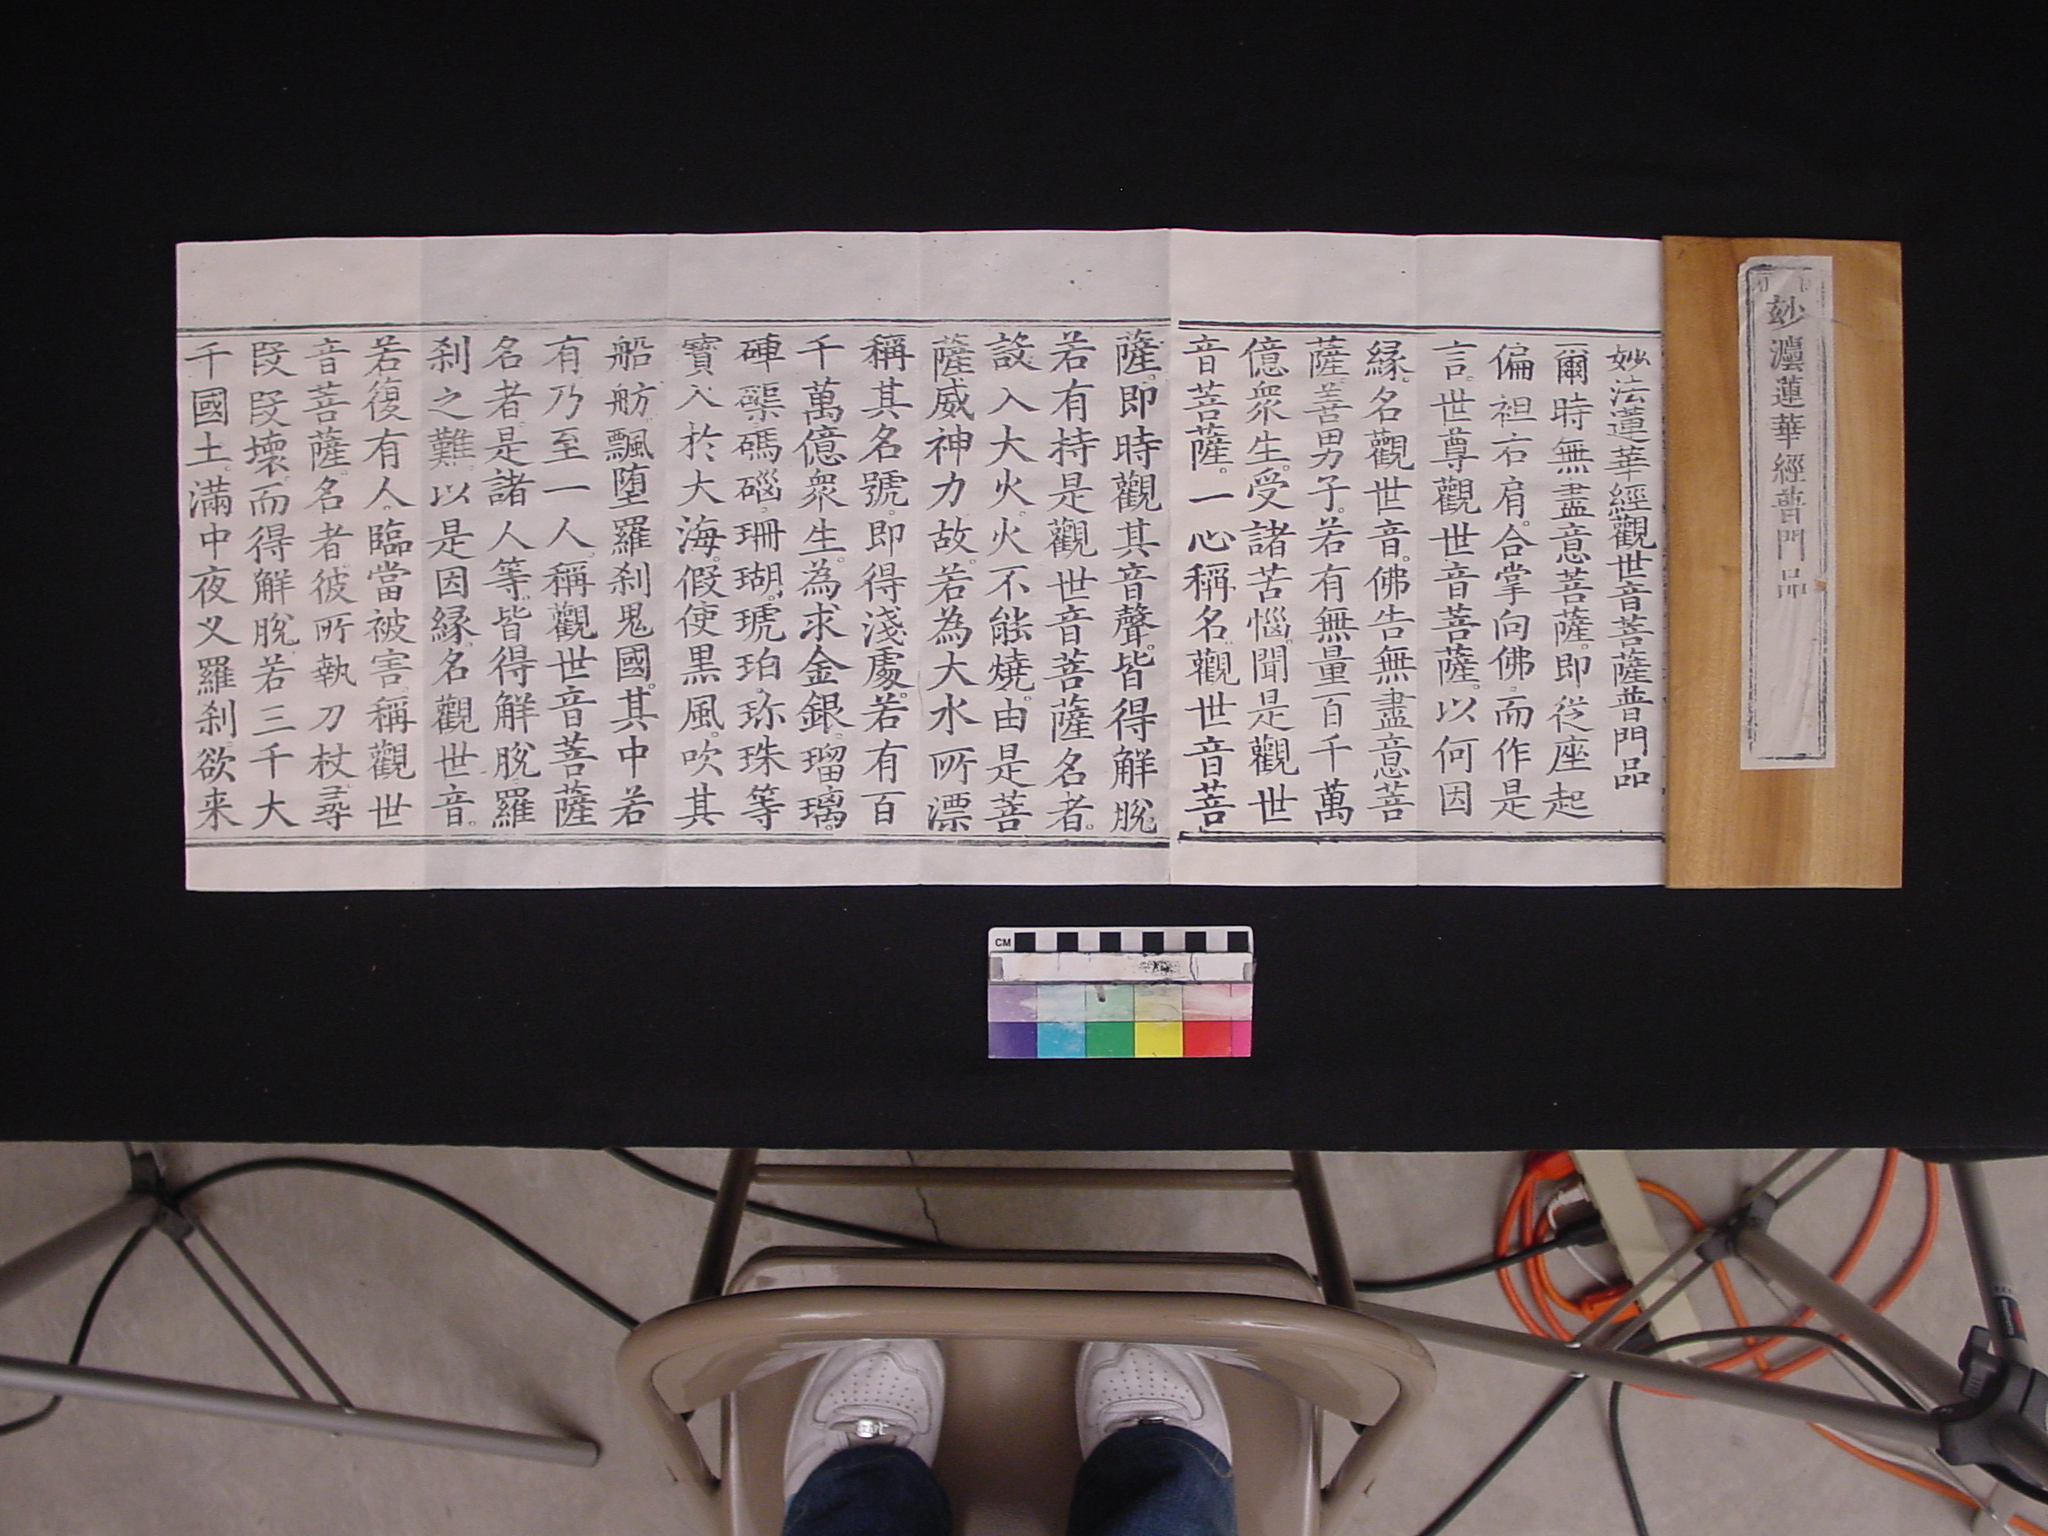 妙灋蓮華經普門品
妙法蓮華經觀世音菩薩普門品
爾時無盡意菩薩。即從座起
偏袒右肩。合掌向佛。而作是
言。世尊觀世音菩薩。以何因
緣。名觀世音。佛告無盡意菩
薩。善男子。若有無量百千萬
億衆生。受諸苦惱。聞是觀世
音菩薩。一心稱名。觀世音菩
薩。即時觀其音聲。皆得解脫
若有持是觀世音菩薩名者。
設入大火。火不能燒。由是菩
薩威神力故。若為大水所漂
稱其名號。即得淺處。若有百
千萬億衆生。為求金銀。瑠璃。
硨磲。碼碯。珊瑚。琥珀。珍珠等
寶。入於大海。假使黑風。吹其
船舫。飄堕羅刹鬼國。其中若
有乃至一人。稱觀世音菩薩
名者。是諸人等。皆得解脫羅
刹之難。以是因緣。名觀世音。
若復有人。臨當被害。稱觀世
音菩薩。名者。彼所執刀杖尋
段段壞。而得解脫若三千大
千國土。滿中夜叉羅刹。欲来
CM